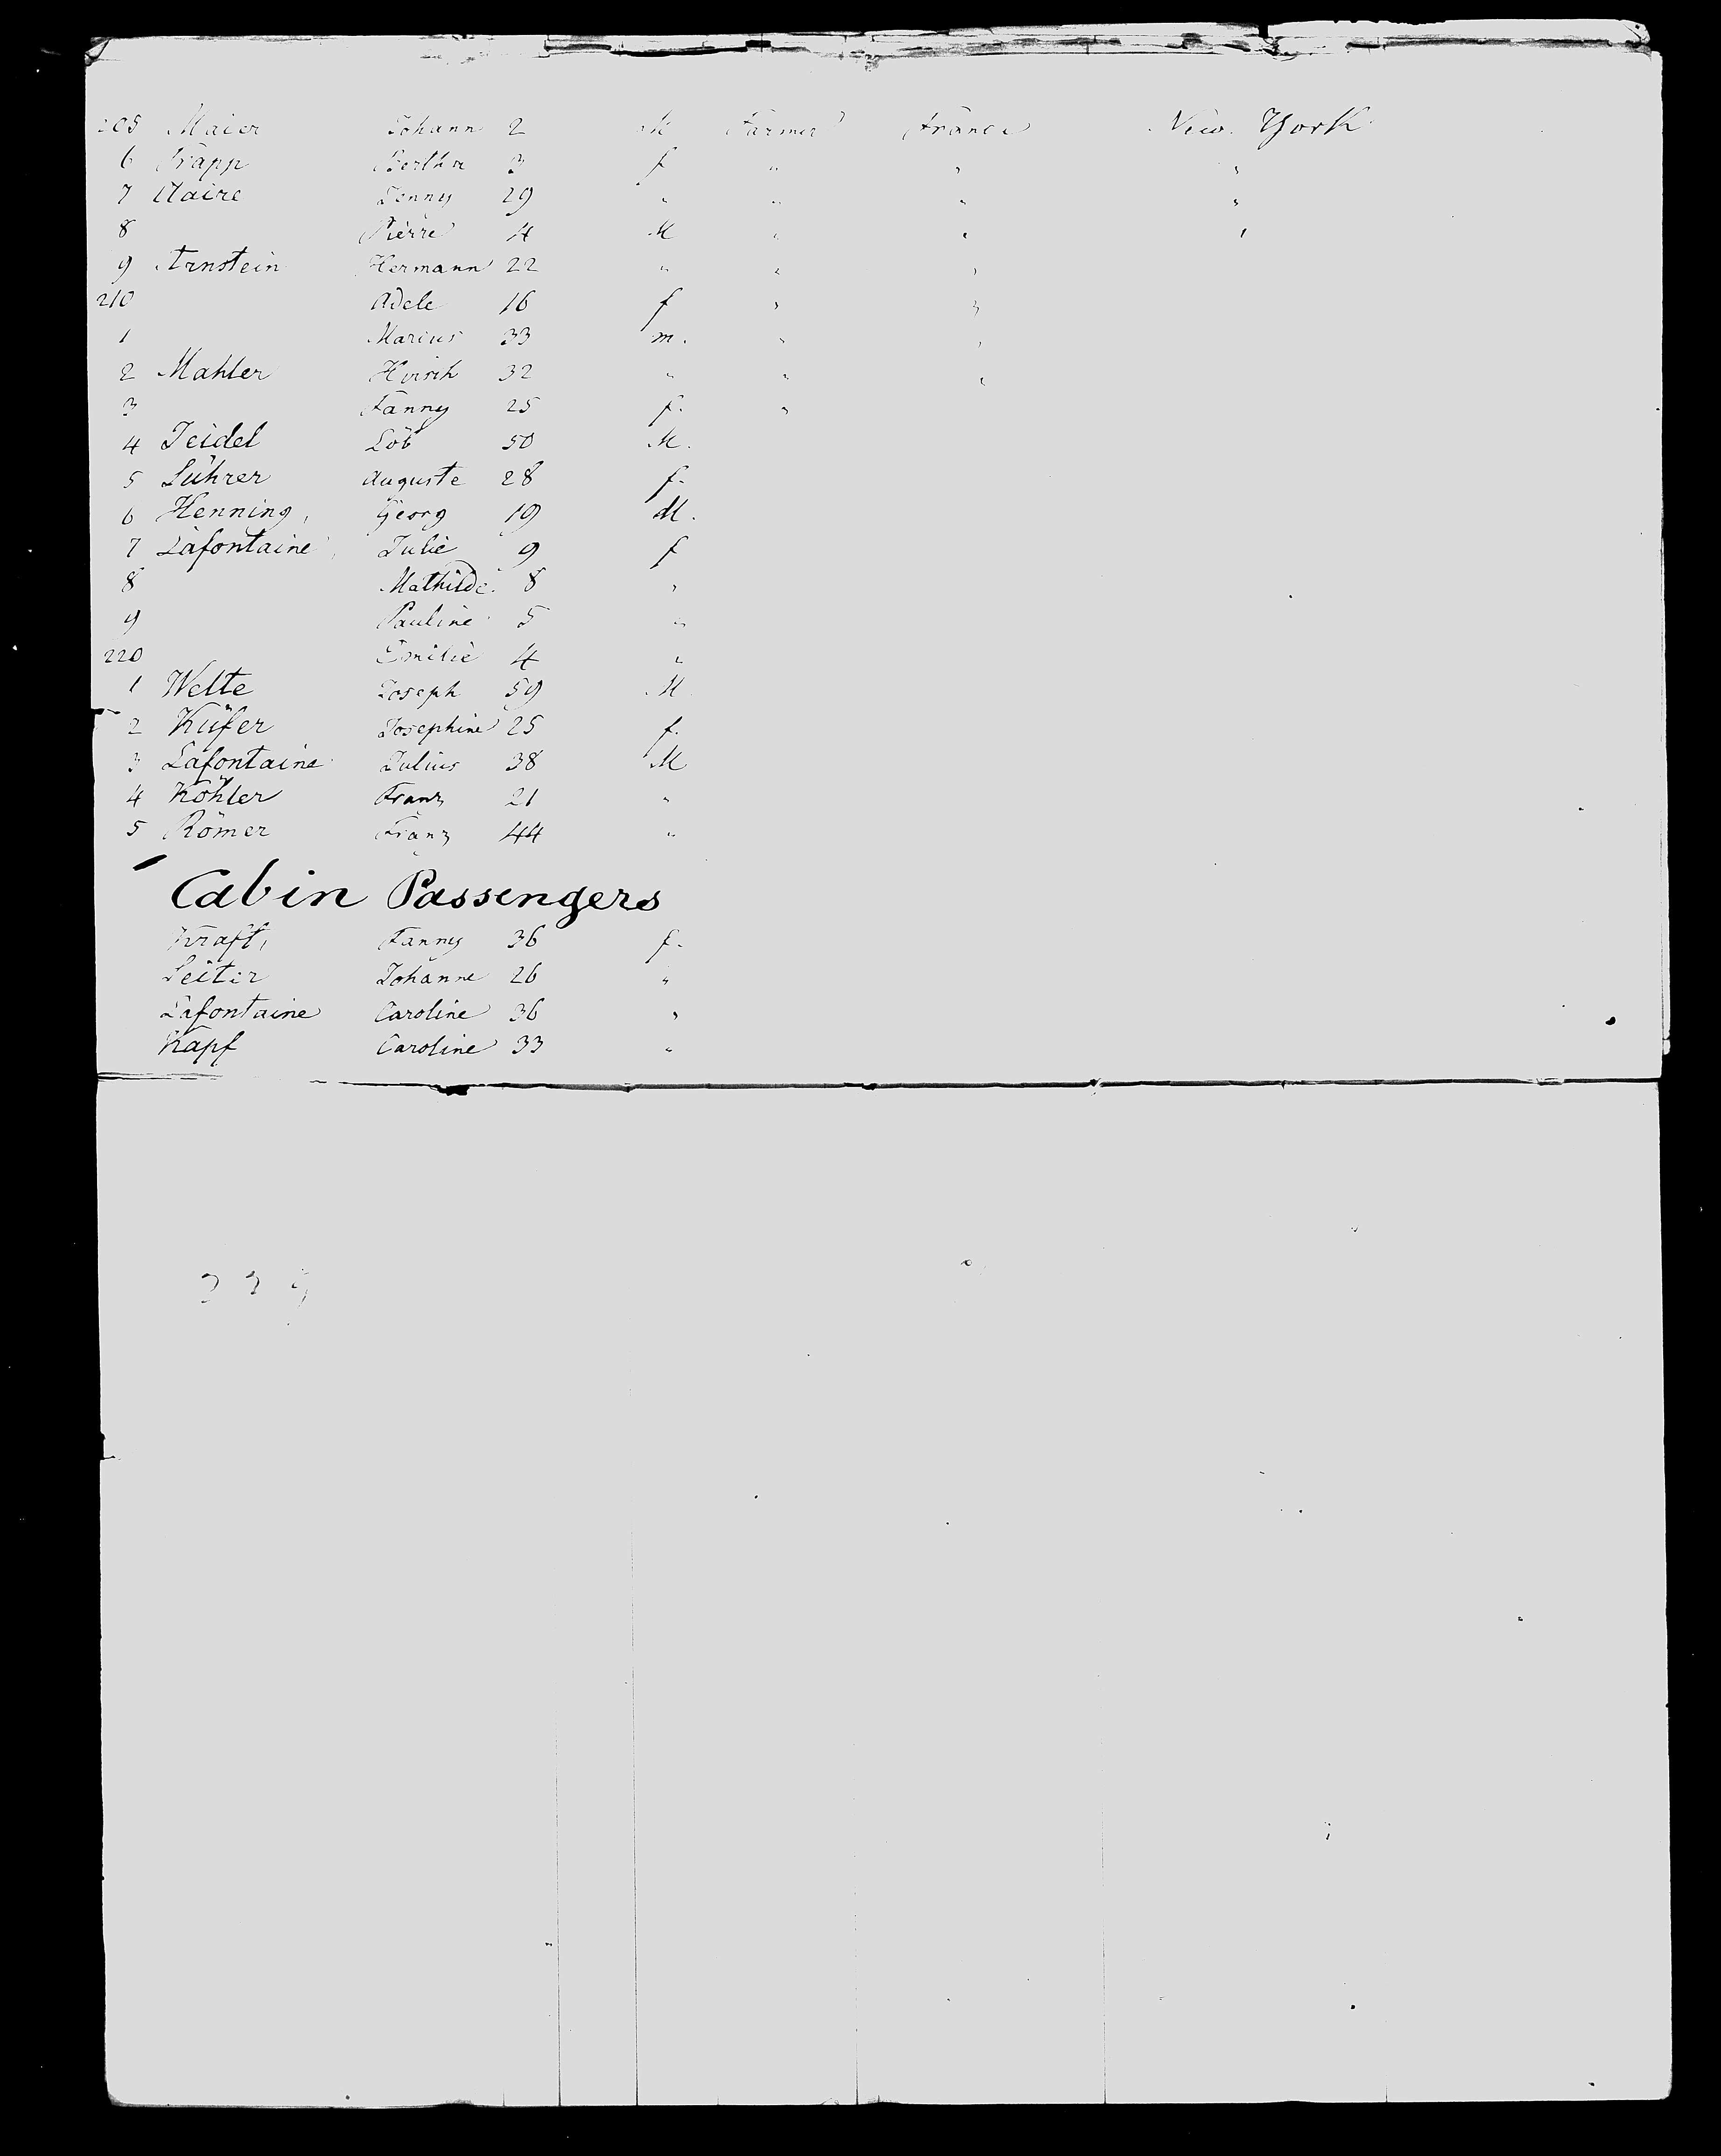 205 Maier Johann 2 M Farmer France New York
6 Trapp Bertha 3 f " " "
7 Claire Jenny 29 " " " "
8 Pierre 4 M " " "
9 Arnstein Hermann 22 " " "
210 Adele 16 f " "
1 Marius 33 m. " "
2 Mahler Hirsch 32 " " "
3 Fanny 25 f. "
4 Teidel Löb 50 M.
5 Lührer Auguste 28 f.
6 Henning, Georg 19 M.
7 Lafontaine Julie 9 f
8 Mathilde 8 "
9 Pauline 5 "
220 Emilie 4 "
1 Welte Joseph 59 M
2 Küfer Josephine 25 f.
3 Lafontaine Julius 38 M
4 Köhler Franz 21 "
5 Römer Franz 44 "
Cabin Passengers
Kraft, Fanny 36 f.
Leiter Johanne 26 "
Lafontaine Caroline 36 "
Kapf Caroline 33 "